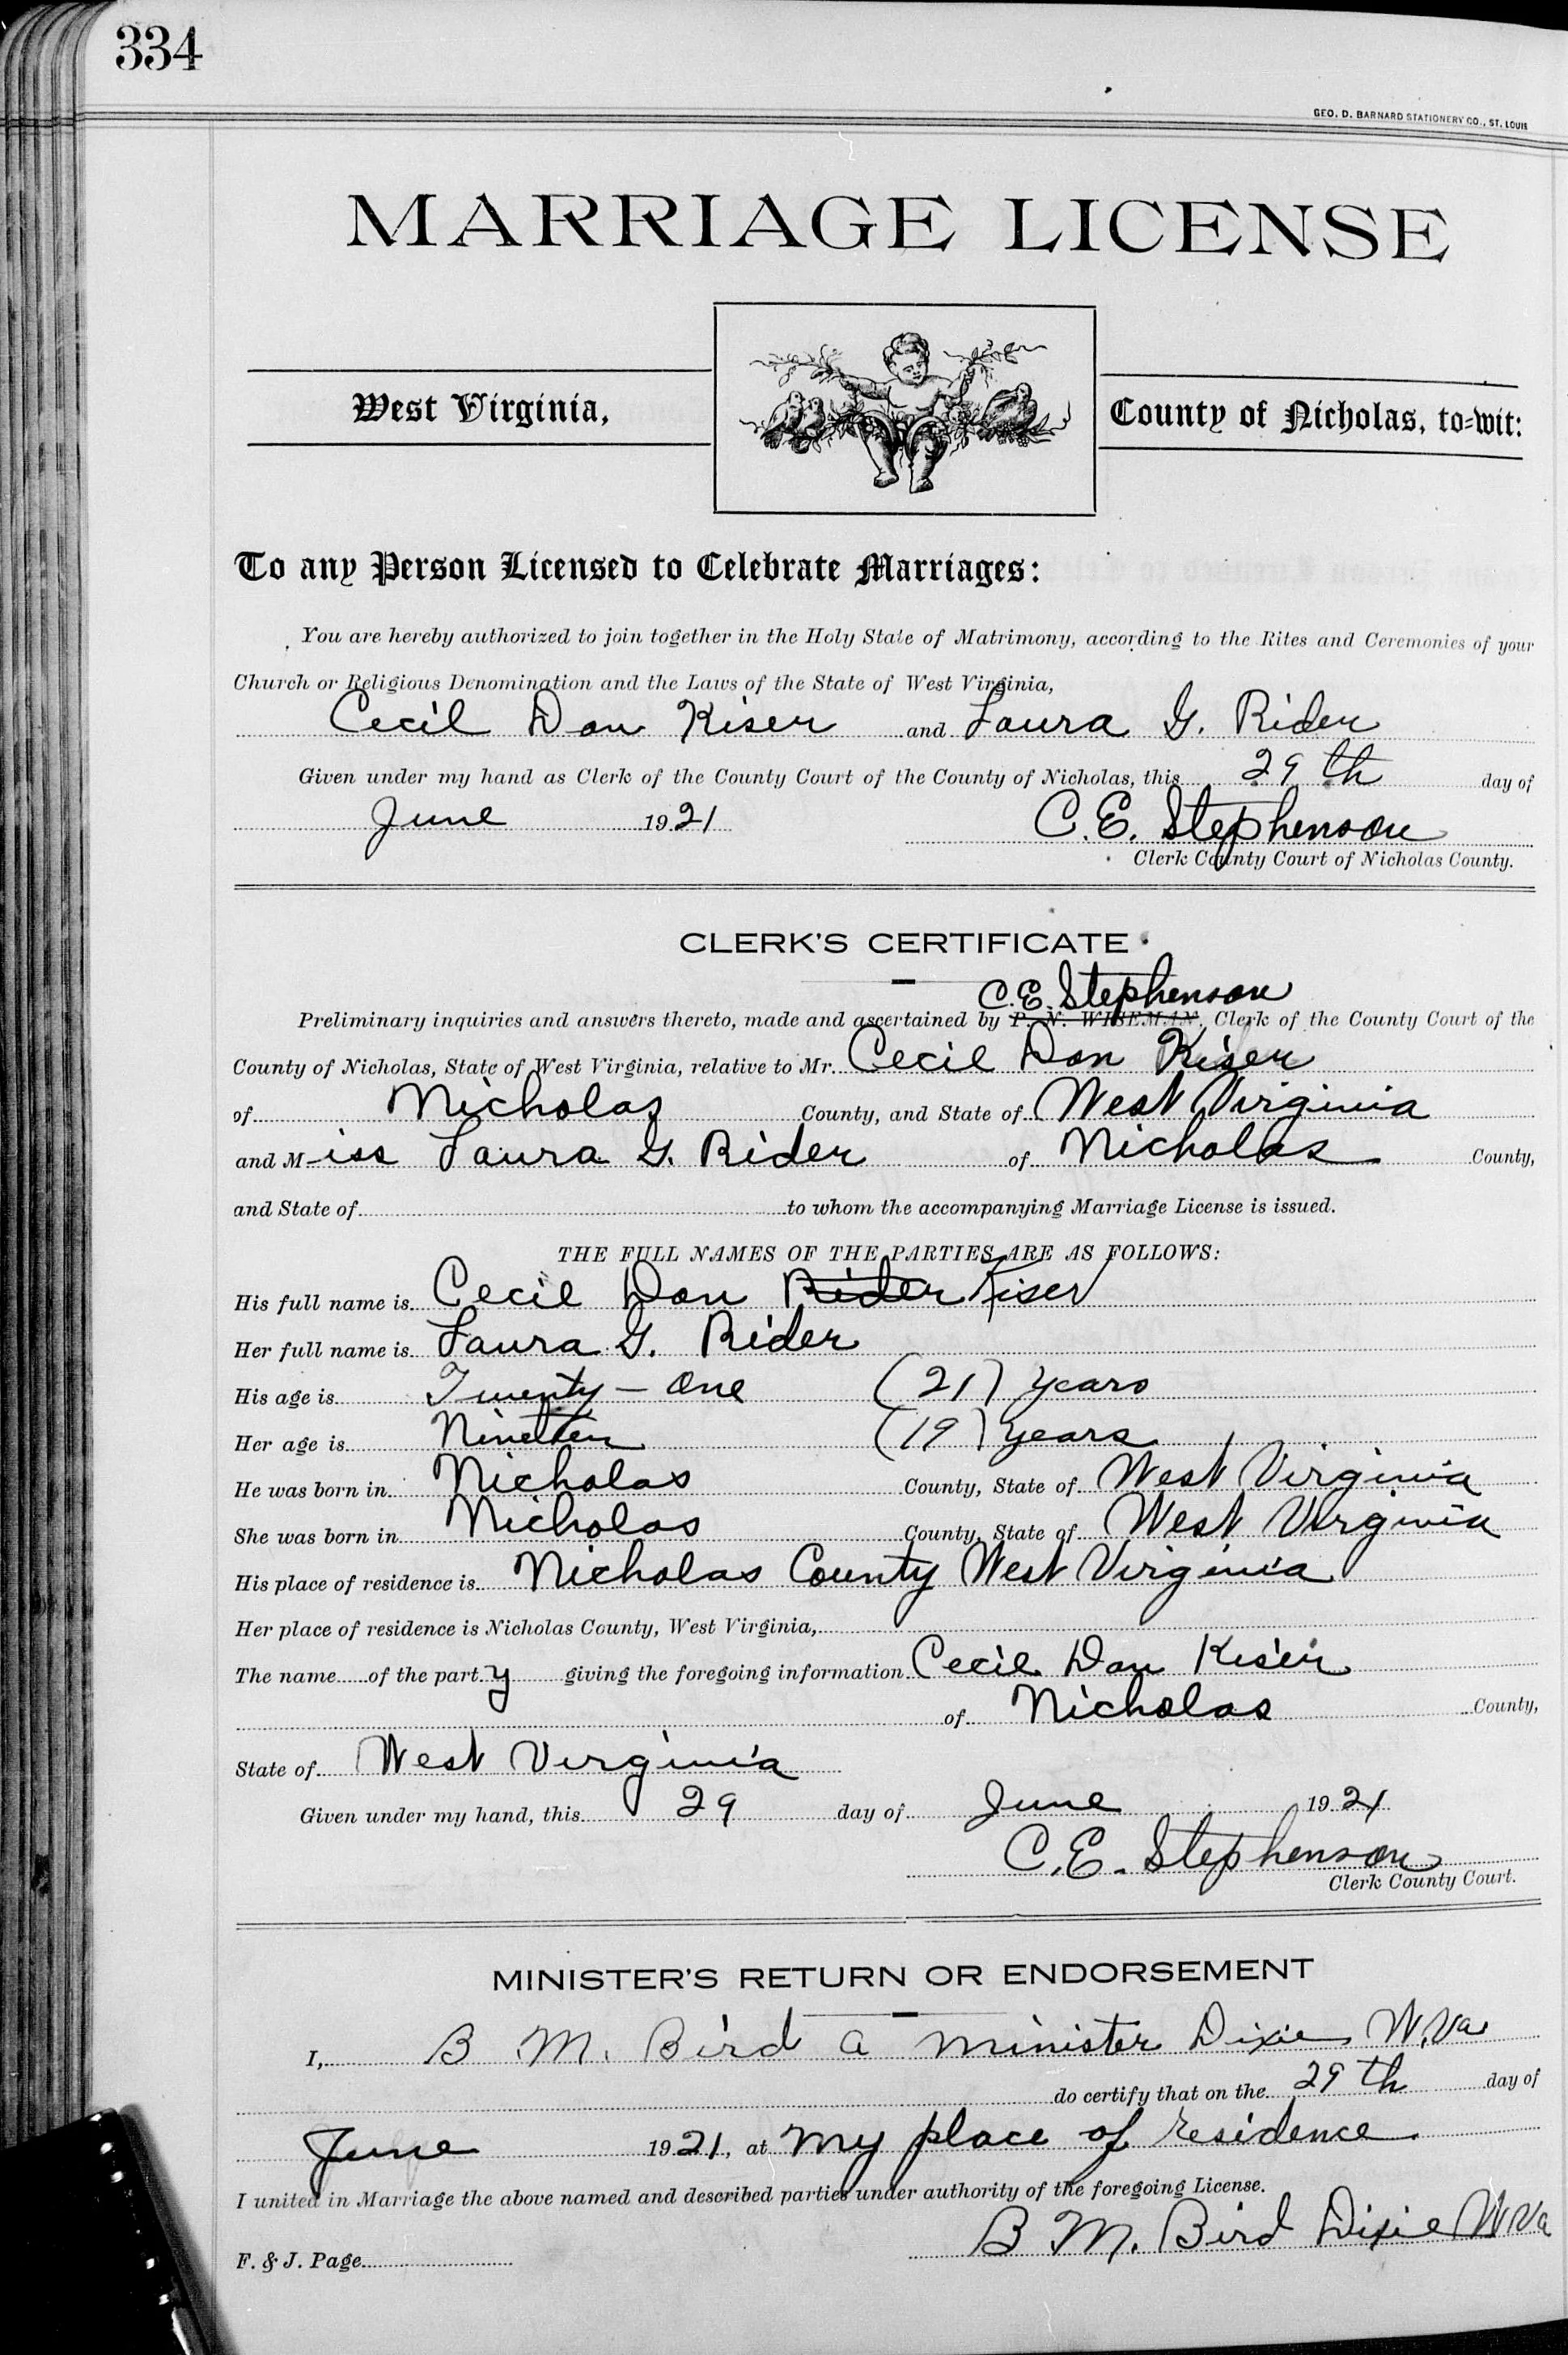 334
GEO. D. BARNARD STATIONERY CO., ST. LOUIS
MARRIAGE LICENSE
West Virginia,
County of Nicholas, to-wit:
To any Person Licensed to Celebrate Marriages:
You are hereby authorized to join together in the Holy State of Matrimony, according to the Rites and Ceremonies of your
Church or Religious Denomination and the Laws of the State of West Virginia,
Cecil Don Kiser and Laura G. Rider
Given under my hand as Clerk of the County Court of the County of Nicholas, this 29th day of
June 1921 C.E. Stephenson
Clerk County Court of Nicholas County.
CLERK'S CERTIFICATE
C.E. Stephenson
Preliminary inquiries and answers thereto, made and ascertained by P. N. WISEMAN, Clerk of the County Court of the
County of Nicholas, State of West Virginia, relative to Mr. Cecil Don Kiser
of Nicholas County, and State of West Virginia
and Miss Laura G. Rider of Nicholas County,
and State of to whom the accompanying Marriage License is issued.
THE FULL NAMES OF THE PARTIES ARE AS FOLLOWS:
His full name is Cecil Don Rider Kiser
Her full name is Laura G. Rider
His age is Twenty-One (21) years
Her age is Nineteen (19) years
He was born in Nicholas County, State of West Virginia
She was born in Nicholas County, State of West Virginia
His place of residence is Nicholas County West Virginia
Her place of residence is Nicholas County, West Virginia,
The name of the party giving the foregoing information Cecil Don Kiser
of Nicholas County,
State of West Virginia
Given under my hand, this 29 day of June 1921
C.E. Stephenson
Clerk County Court.
MINISTER'S RETURN OR ENDORSEMENT
I, B M. Bird a minister Dixie W.Va
do certify that on the 29th day of
June 1921, at my place of residence.
I united in Marriage the above named and described parties under authority of the foregoing License.
B M. Bird Dixie W Va
F. & J. Page